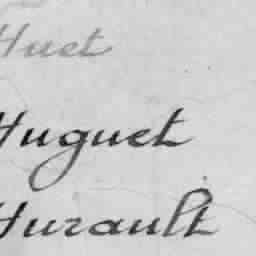 Huet
Huguet
Hurault